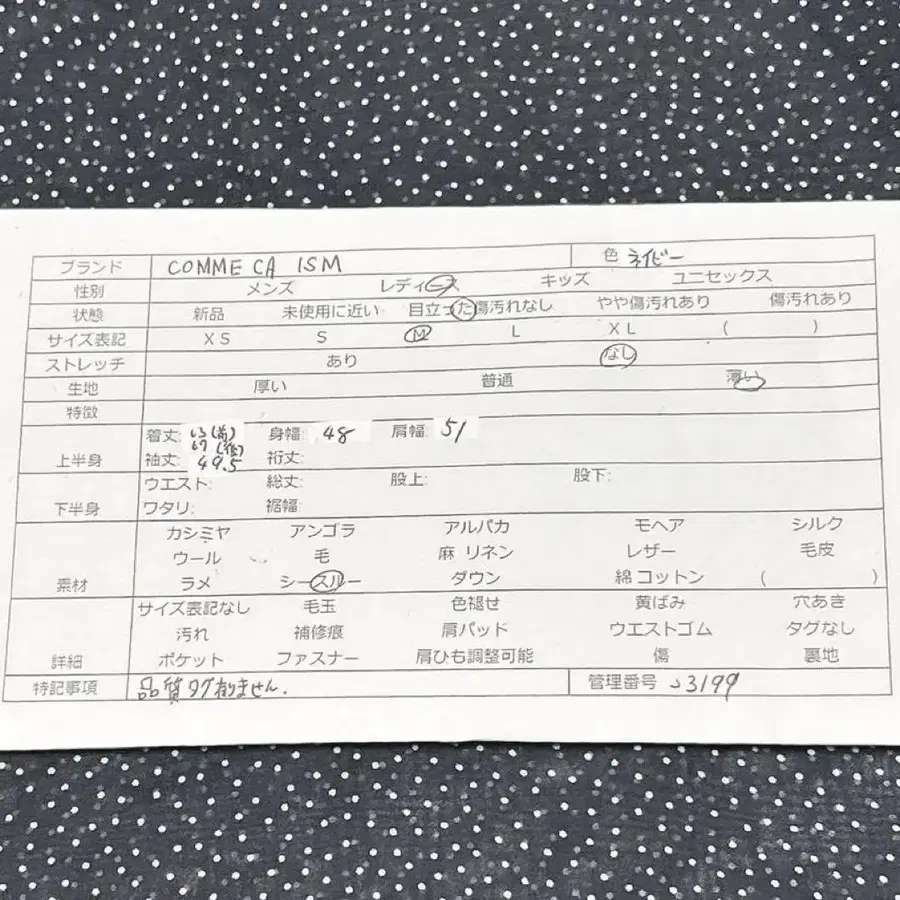 ブランド COMME CA ISM 色 ネイビー
性別 メンズ レディース キッズ ユニセックス
状態 新品 未使用に近い 目立った傷汚れなし やや傷汚れあり 傷汚れあり
サイズ表記 XS S M L XL ( )
ストレッチ あり なし
生地 厚い 普通 薄い
特徴
着丈: 63(前) 身幅: 48 肩幅: 51
67(後)
上半身 袖丈: 49.5 裄丈:
ウエスト: 総丈: 股上: 股下:
下半身 ワタリ: 裾幅:
カシミヤ アンゴラ アルパカ モヘア シルク
ウール 毛 麻 リネン レザー 毛皮
素材 ラメ シースルー ダウン 綿 コットン ( )
サイズ表記なし 毛玉 色褪せ 黄ばみ 穴あき
汚れ 補修痕 肩パッド ウエストゴム タグなし
詳細 ポケット ファスナー 肩ひも調整可能 傷 裏地
特記事項 品質タグ有りません. 管理番号 3199